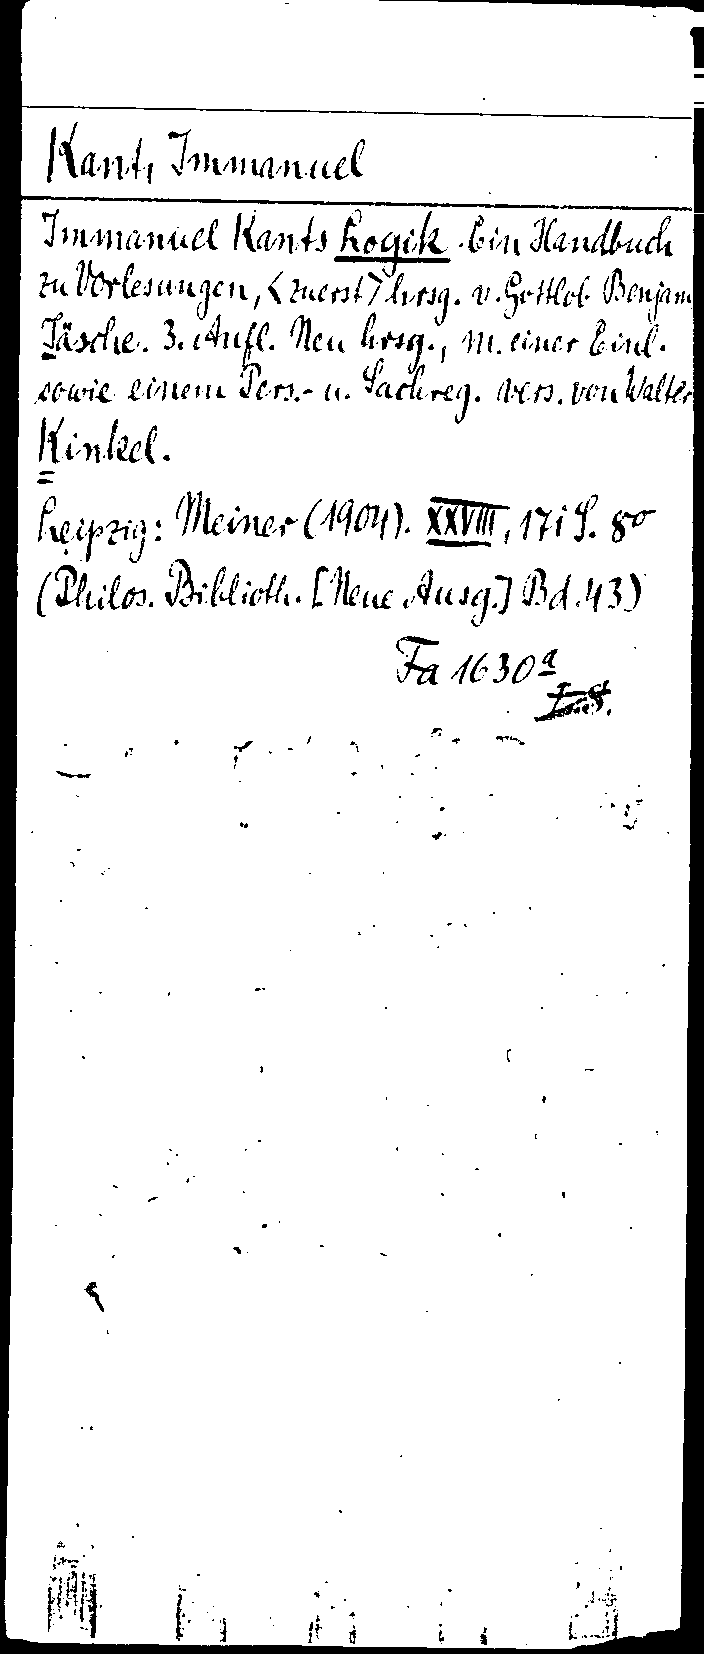 Kant, Immanuel
Immanuel Kants Logik. Ein Handbuch
zu Vorlesungen, <zuerst> hrsg. v. Gottlob Benjam
Jäsche. 3. Aufl. Neu hrsg., m. einer Einl.
sowie einem Pers.- u. Sachreg. vers. von Walter
Kinkel.
Leipzig: Meiner (1904). XXVIII, 171 S. 8°
(Philos. Biblioth. [Neue Ausg.] Bd. 43)
Fa 1630ª